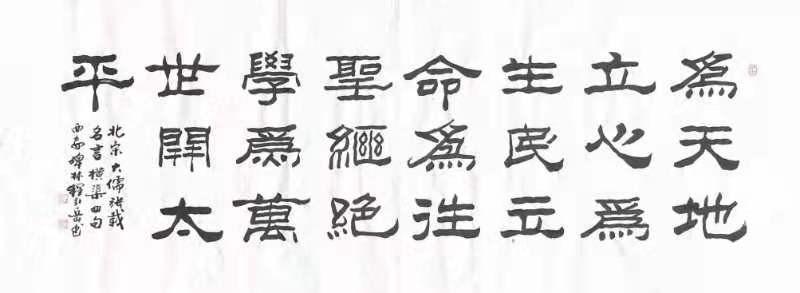 爲天地
立心爲
生民立
命爲往
聖繼絕
學爲萬
世開太
平
北宋大儒張載
名言橫渠四句
西安碑林